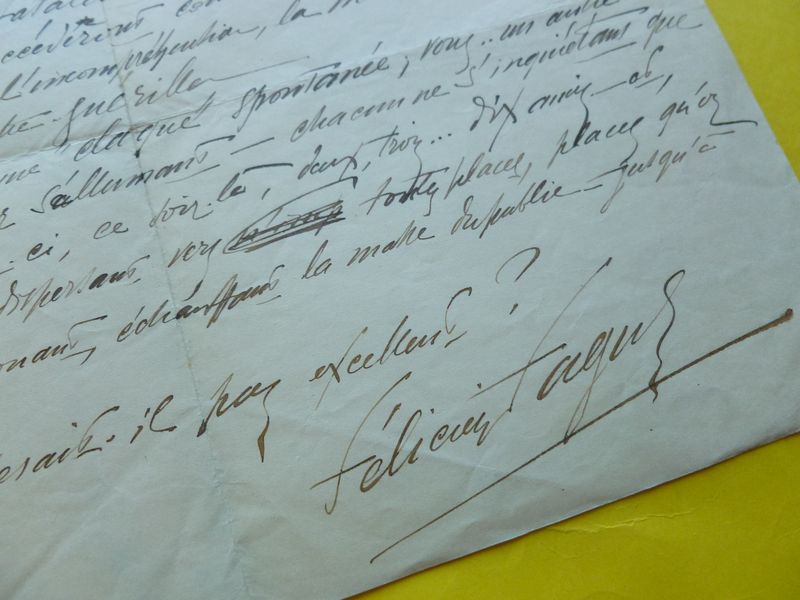 succéderions
l'incompréhension, la
guérilla
claque spontanée, vous.. un autre
s'allumant — chacun ne s'inquiétant que
ci, ce soir-là, deux, trois... dix mois — et,
dispersant vers toutes places, places qu'on
échauffant la masse du public — jusqu'à
serait-il pas excellent ?
Félicien Fagus